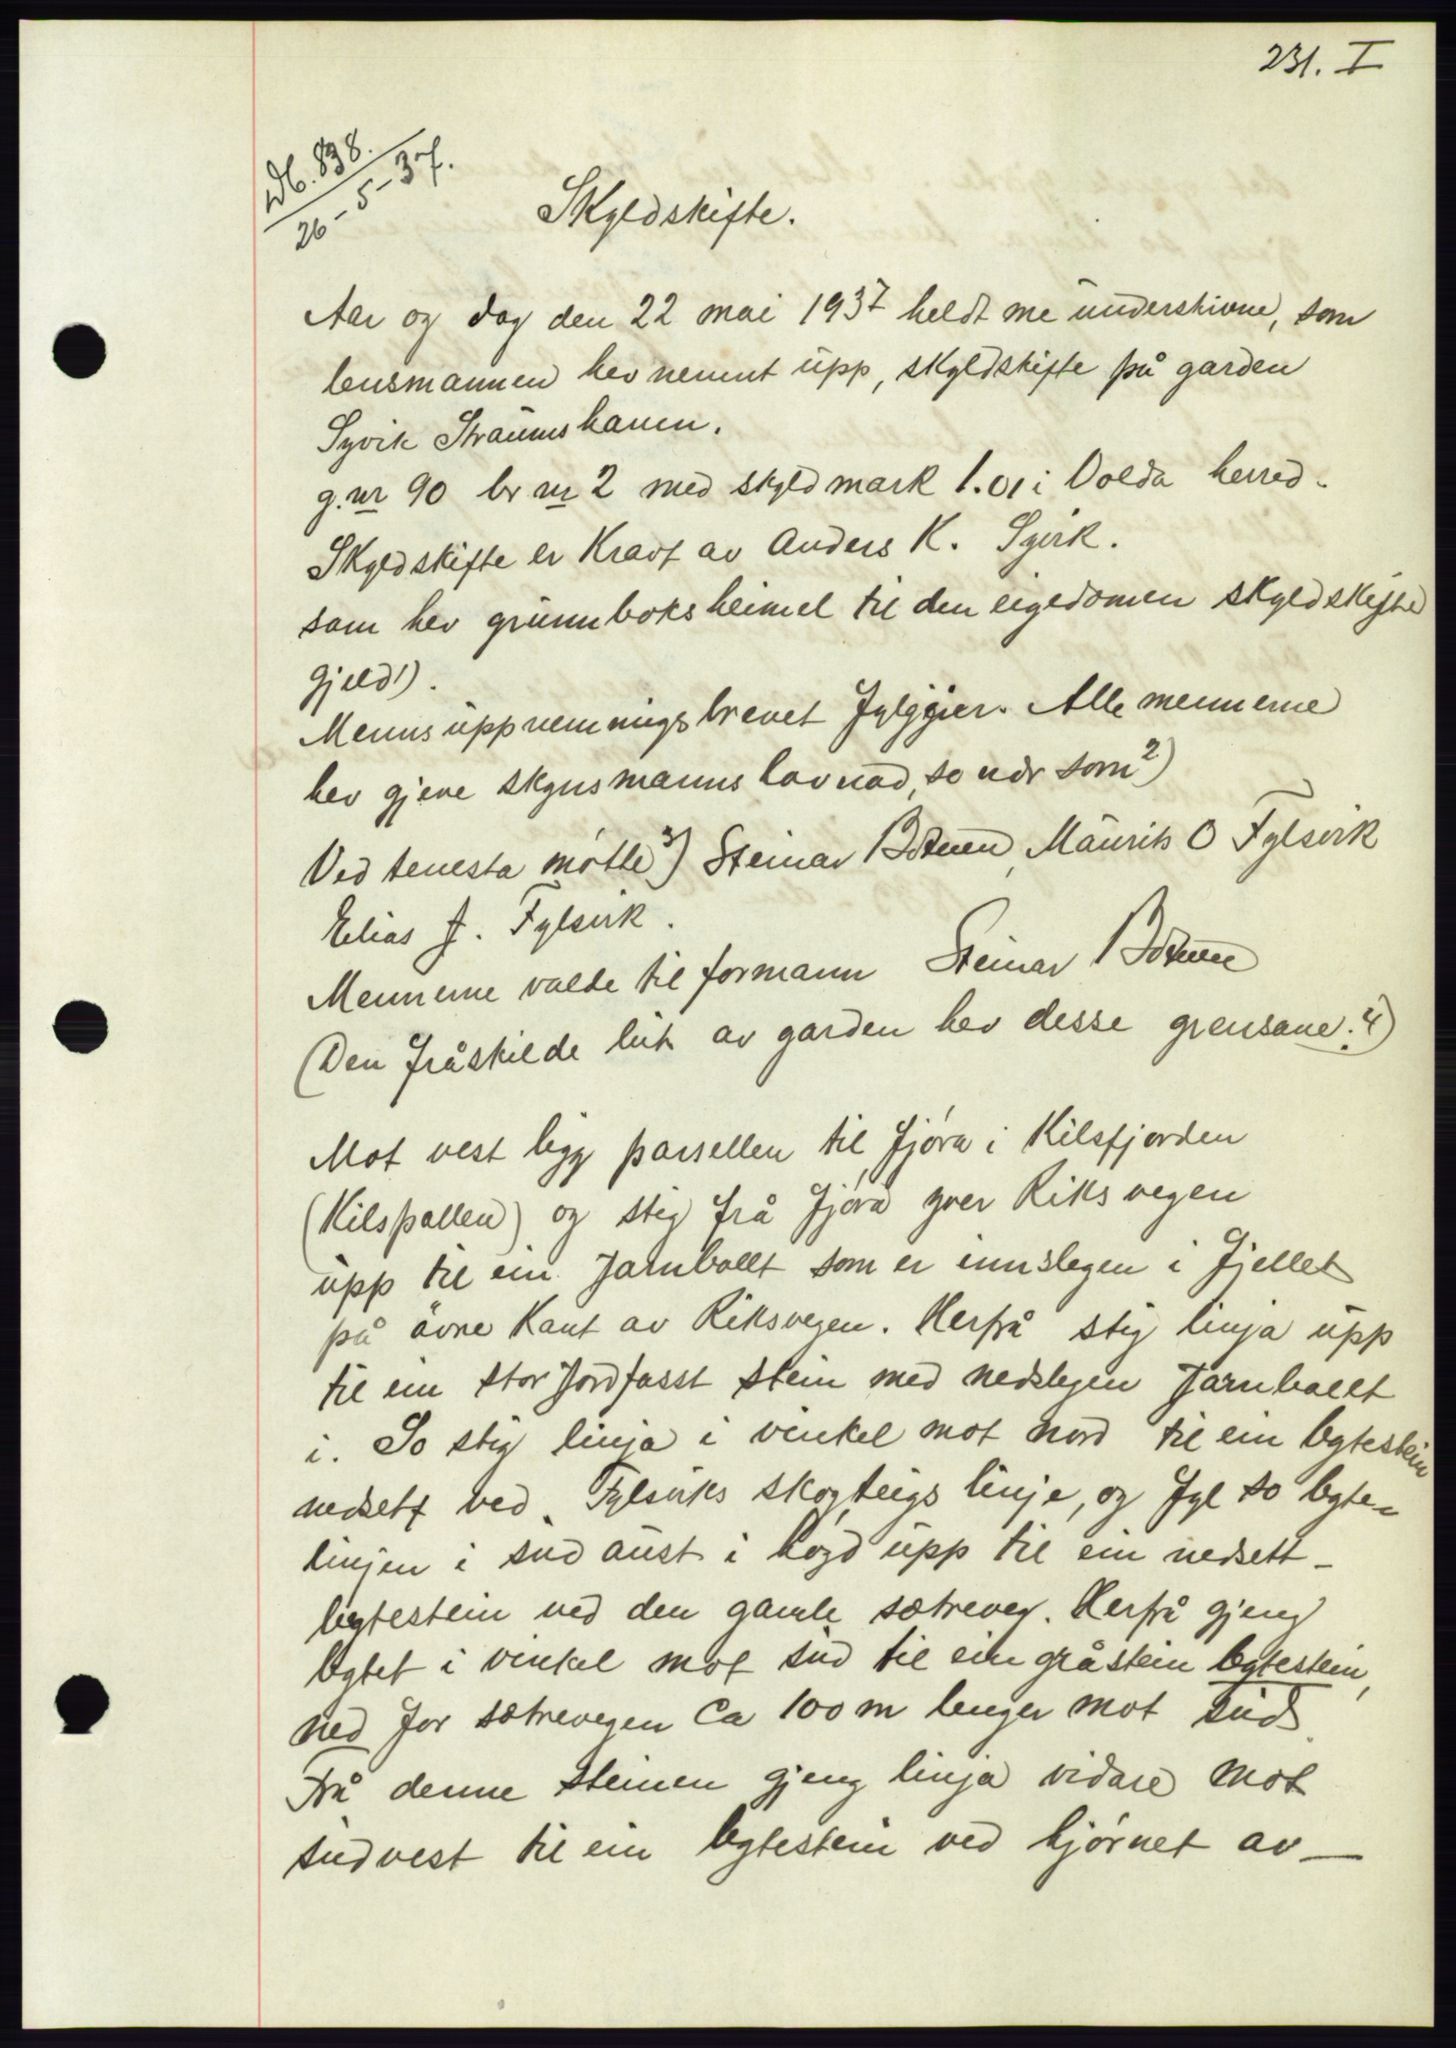 231. I
Db. 838.
26-5-37.
Skyldskifte.
Aar og dag den 22 mai 1937 heldt me underskivne, som
lensmannen hev nemnt upp, skyldskifte på garden
Syvik Straumshamn.
g.nr 90 br nr 2 med skyldmark 1.01 i Volda herred.
Skyldskifte er Kravt av Anders K. Syvik.
som hev grunnboksheimel til den eigedomen skyldskiftet
gjeld 1).
Mennsuppnemningsbrevet fylgjer. Alle mennerne
hev gjeve skynsmannslovnad, so nær som 2)
Ved tenesta møtte 3) Steinar Botnen, Maurits O Fylsvik
Elias J. Fylsvik.
Mennerne valde til formann Steinar Botnen
(Den fråskilde lut av garden hev desse grensane: 4)
Mot vest ligg parsellen til fjøra i Kilsfjorden
(Kilspallen) og stig frå fjøra yver Riksvegen
upp til ein Jarnbollt som er innslegen i fjellet
på øvre Kant av Riksvegen. Herfrå stig linja upp
til ein stor jordfasst stein med nedslegen Jarnbollt
i. So stig linja i vinkel mot nord til ein bytestein
nedsett ved Fylsviks skogteigs linje, og fyl so byte-
linjen i sud aust i høgd upp til ein nedsett-
bytestein ved den gamle sætreveg. Herfrå gjeng
bytet i vinkel mot sud til ein gråstein bytestein,
ned for sætrevegen Ca 100 m lenger mot sud.
Frå denne steinen gjeng linja vidare mot
sudvest til ein bytestein ved hjørnet av—